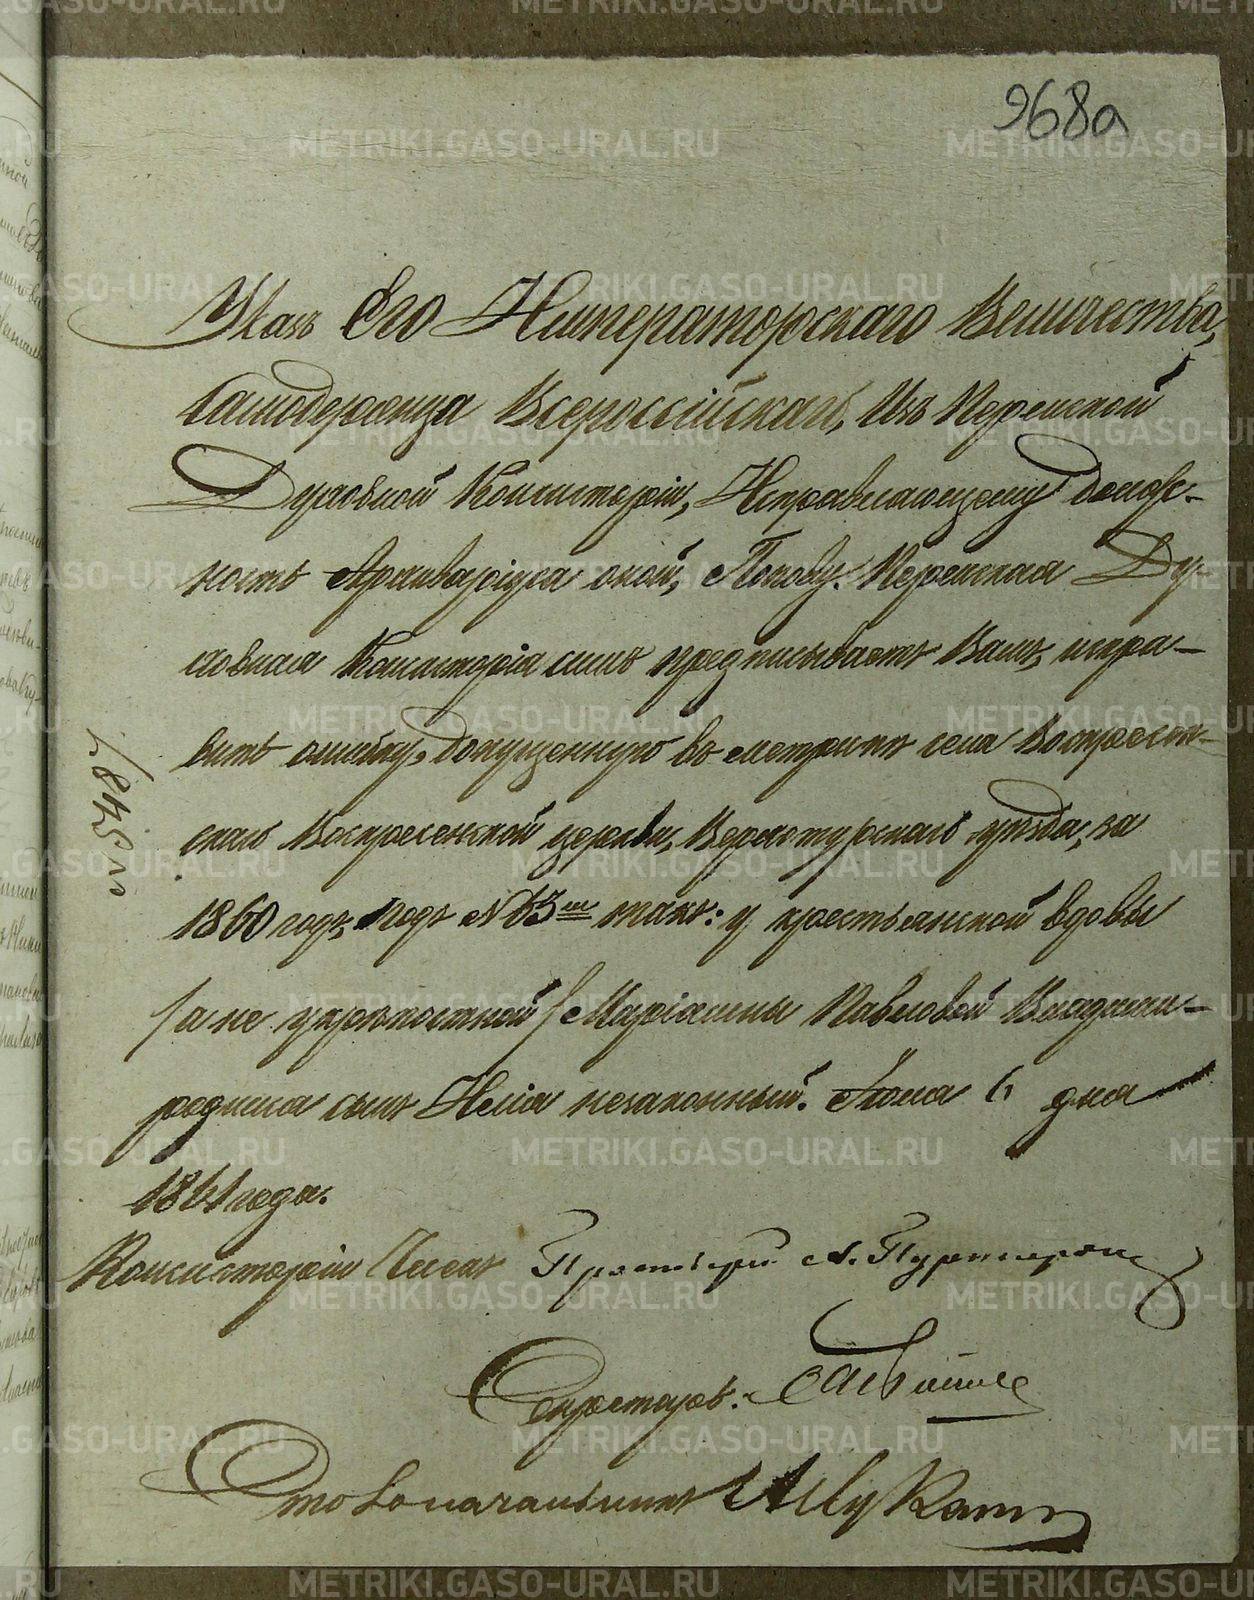 968а
Указъ Его Императорскаго Величества,
Самодержца Всероссійскаго, Изъ Пермской
Духовной Консисторіи, Исправляющему долж-
ность Архиваріуса оной, Попову. Пермская Ду-
ховная Консисторія симъ предписываетъ Вамъ, испра-
вить ошибку, допущенную въ метрикѣ села Воскресен-
скаго Воскресенской церкви, Верхотурскаго уѣзда, за
1860 годъ, подъ №63мъ такъ: у крестьянской вдовы
/а не укрѣпостной/ Маріамны Павловой
родился сынъ Илія незаконный. Іюля 6 дня
1861 года.
№ 5487
Консисторіи Членъ Протоіерей А.
Секретарь:
Столоначальникъ
METRIKI.GASO-URAL.RU